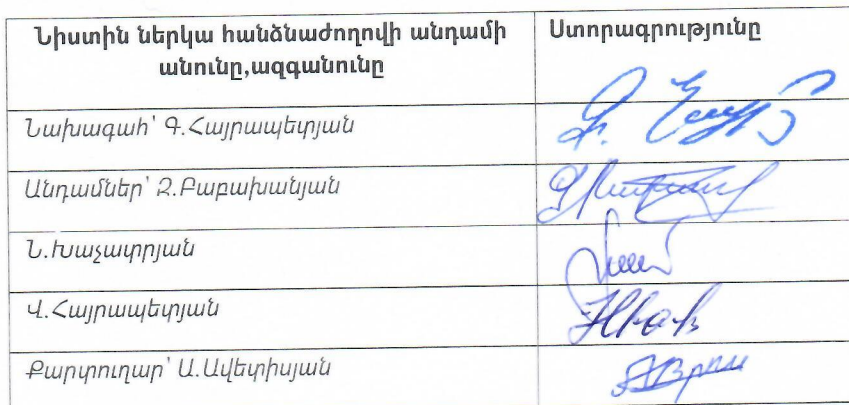 Նիստին ներկա հանձնաժողովի անդամի
անունը,ազգանունը
Ստորագրությունը
Նախագահ՝ Գ.Հայրապետյան
Անդամներ՝ Զ.Բաբախանյան
Ն.Խաչատրյան
Վ.Հայրապետյան
Քարտուղար՝ Ա.Ավետիսյան